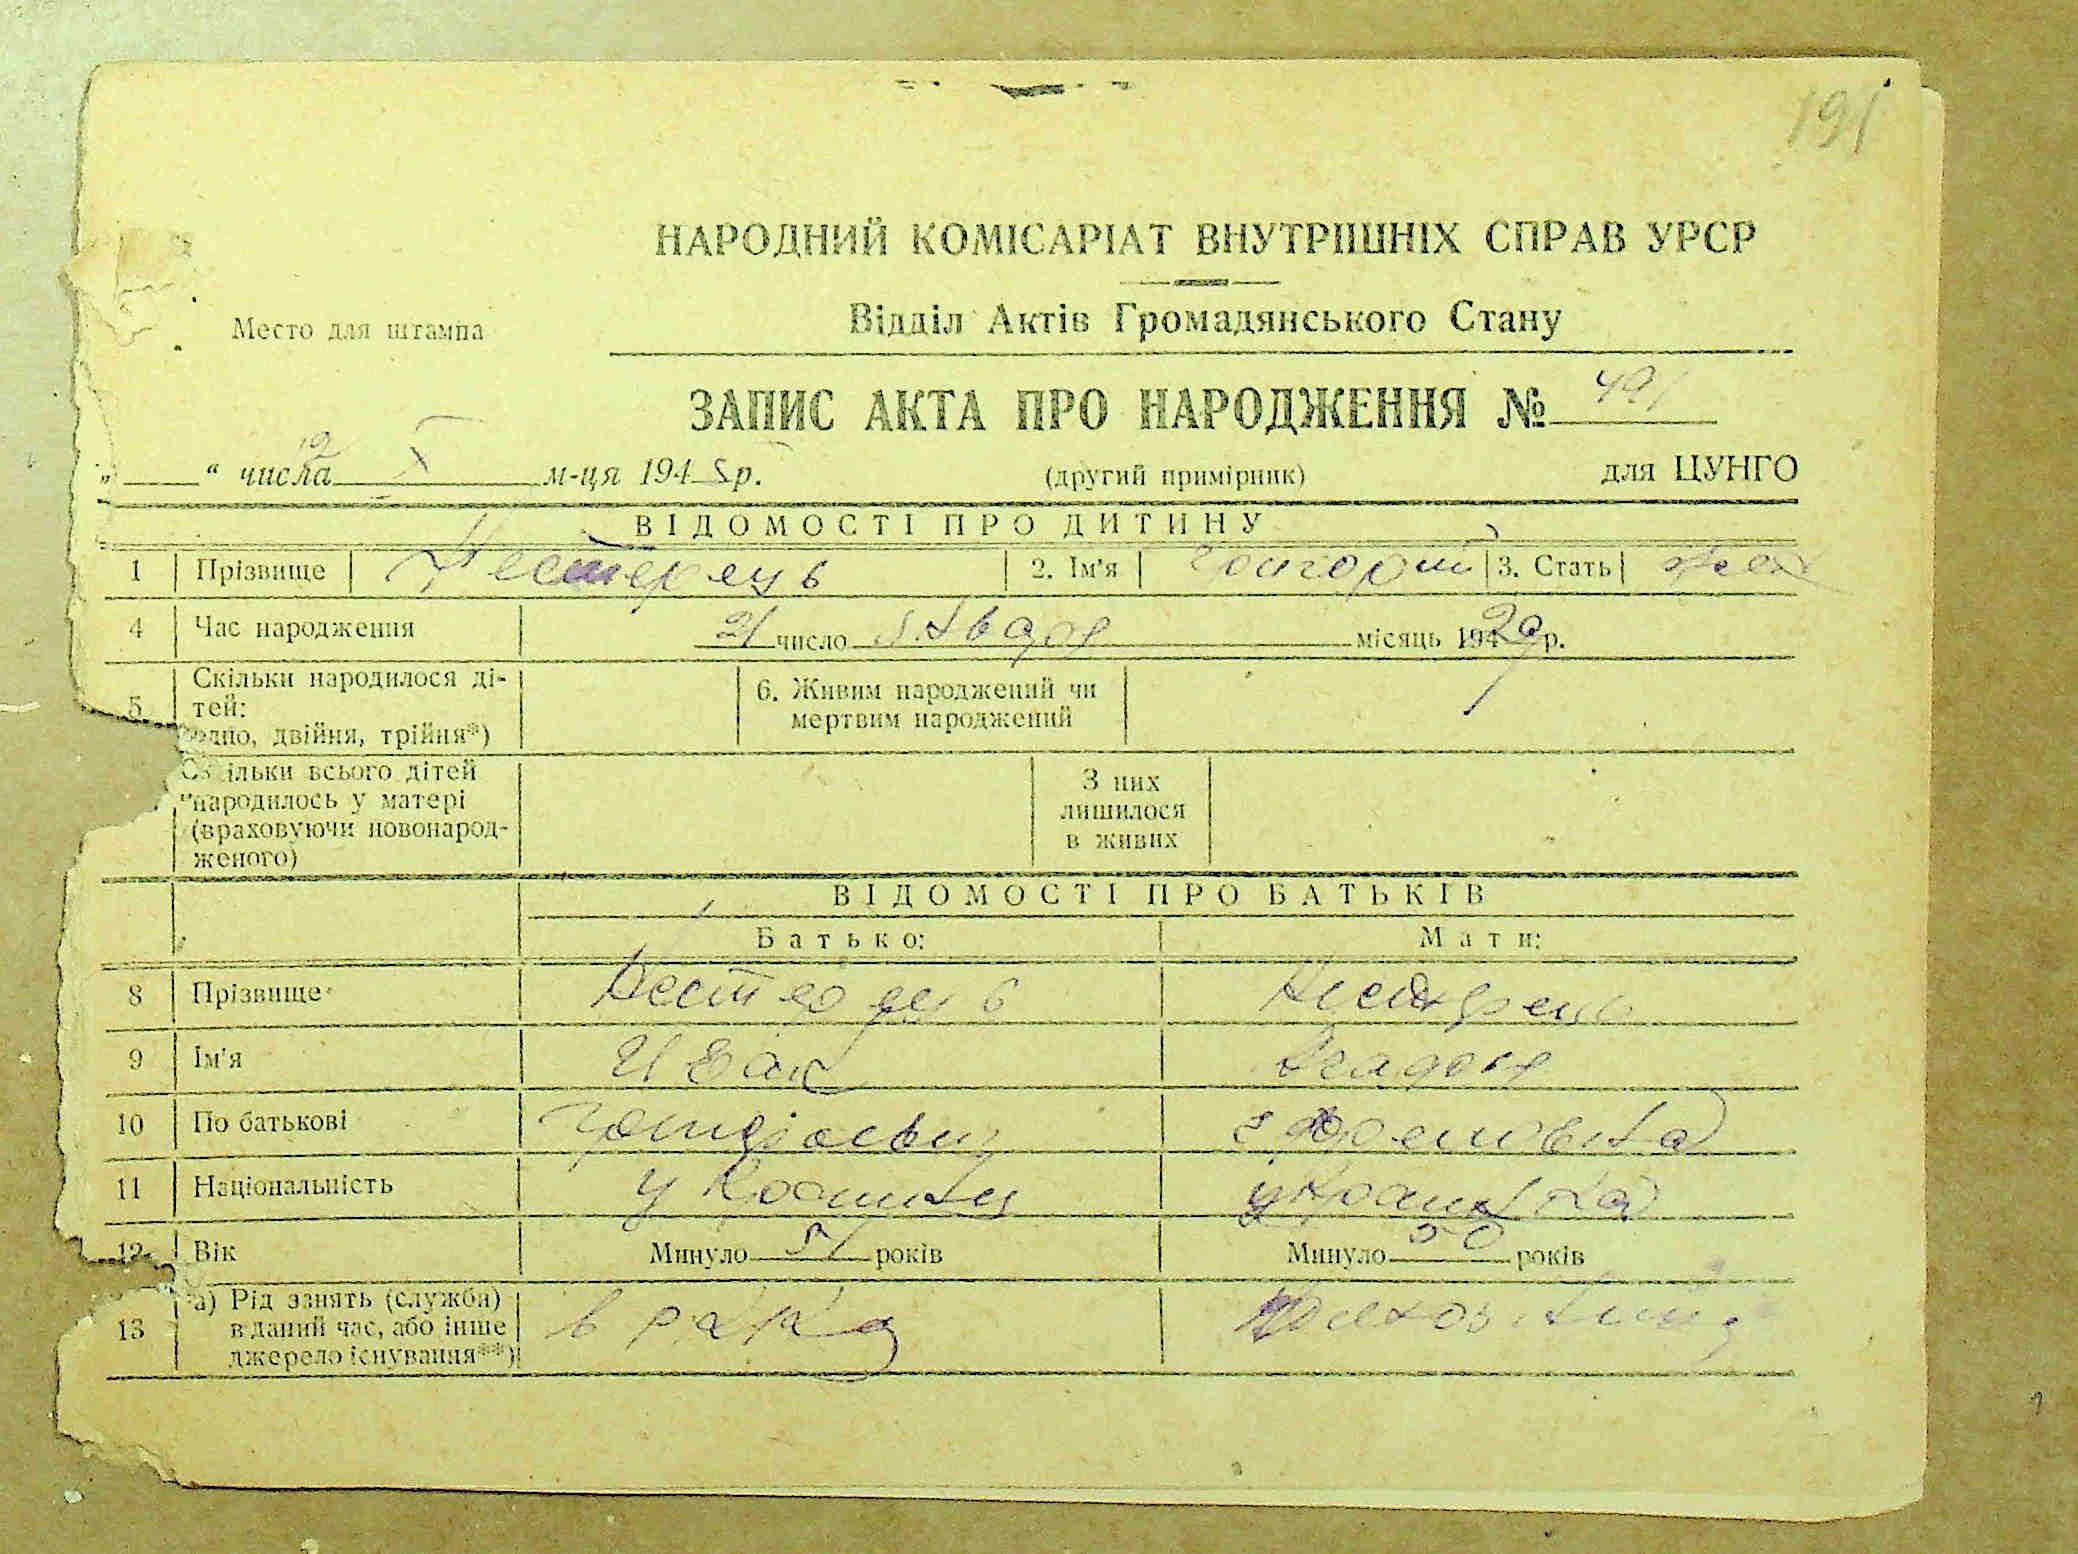 191
НАРОДНИЙ КОМІСАРІАТ ВНУТРІШНІХ СПРАВ УРСР
Место для штампа
Відділ Актів Громадянського Стану
ЗАПИС АКТА ПРО НАРОДЖЕННЯ № 491
„ “ числа 12 X м-ця 1945 р. (другий примірник) для ЦУНГО
ВІДОМОСТІ ПРО ДИТИНУ
1 Прізвище Нестерець 2. Ім'я Григорий 3. Стать
4 Час народження 21 число января місяць 1929 р.
5 Скільки народилося ді-
тей:
одно, двійня, трійня*)
6. Живим народжений чи
мертвим народжений
Скільки всього дітей
народилось у матері
(враховуючи новонарод-
женого)
З них
лишилося
в живих
ВІДОМОСТІ ПРО БАТЬКІВ
Батько: Мати:
8 Прізвище Нестерець Нестерець
9 Ім'я Иван
10 По батькові Ефремовна
11 Національність украинец украинка
12 Вік Минуло 51 років Минуло 50 років
13 а) Рід занять (служби)
в даний час, або інше
джерело існування**)
в ркка